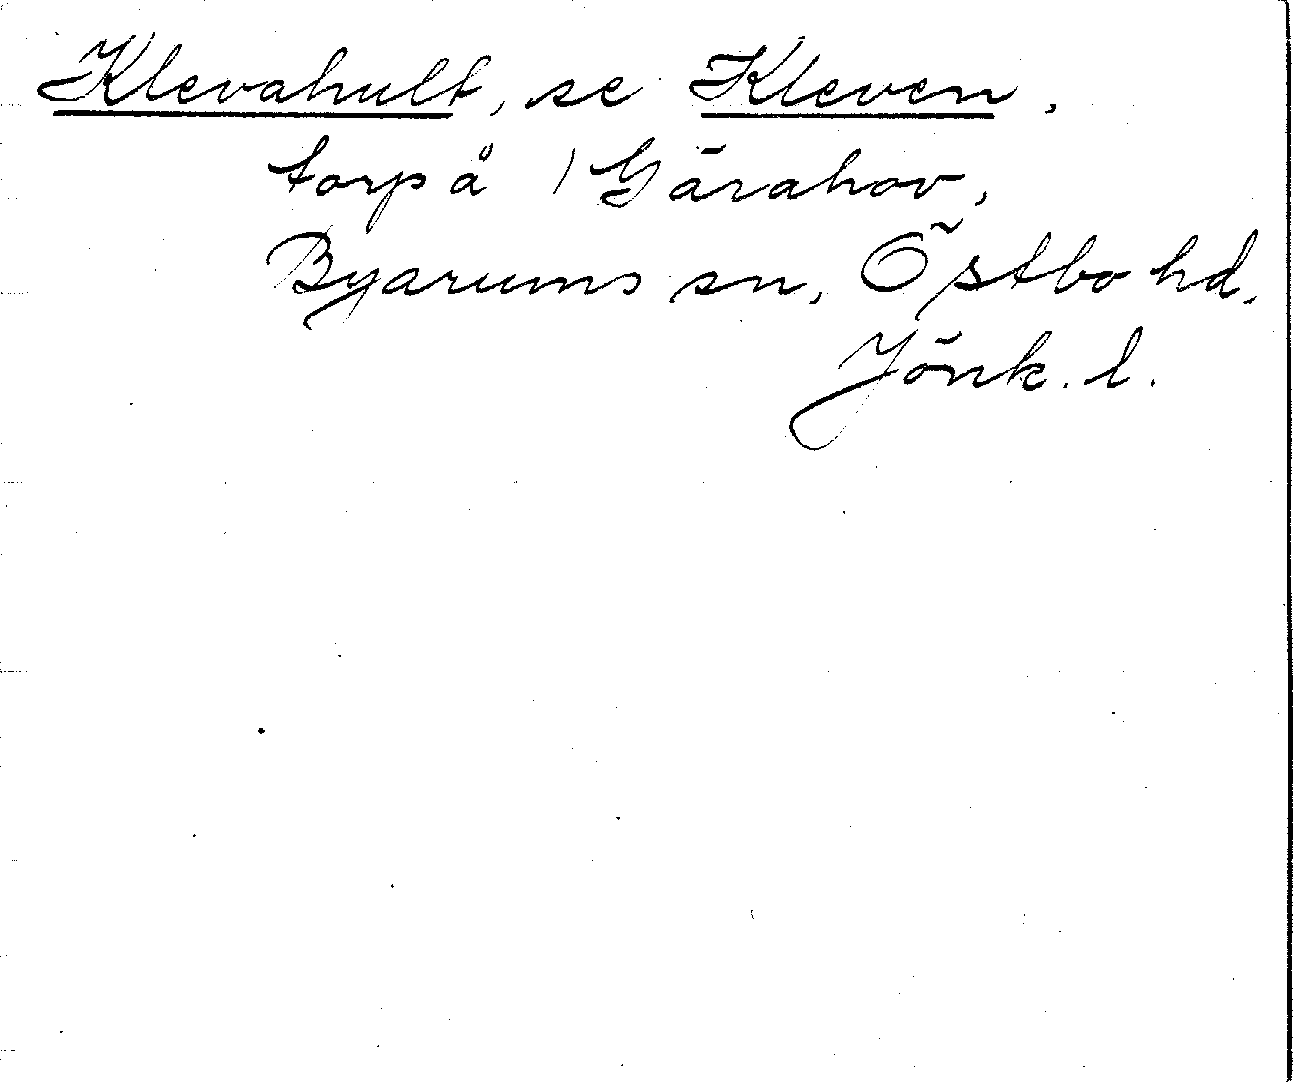 Klevahult, se Kleven,
torp å 1 Gärahov,
Byarums sn, Östbo hd,
Jönk. l.